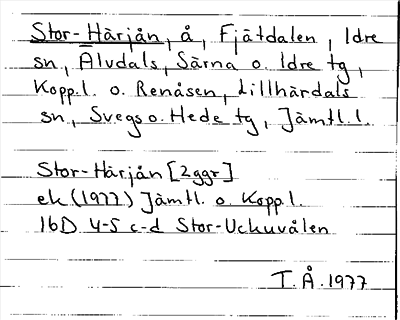 Stor-Härjån, å, Fjätdalen, Idre
sn, Älvdals, Särna o. Idre tg,
Kopp.l. o. Renåsen, Lillhärdals
sn, Svegs o. Hede tg, Jämtl.l.
Stor-Härjån [2ggr]
ek (1977) Jämtl. o. Kopp.l.
16D 4-5 c-d Stor-Uckuvålen
T.Å.1977